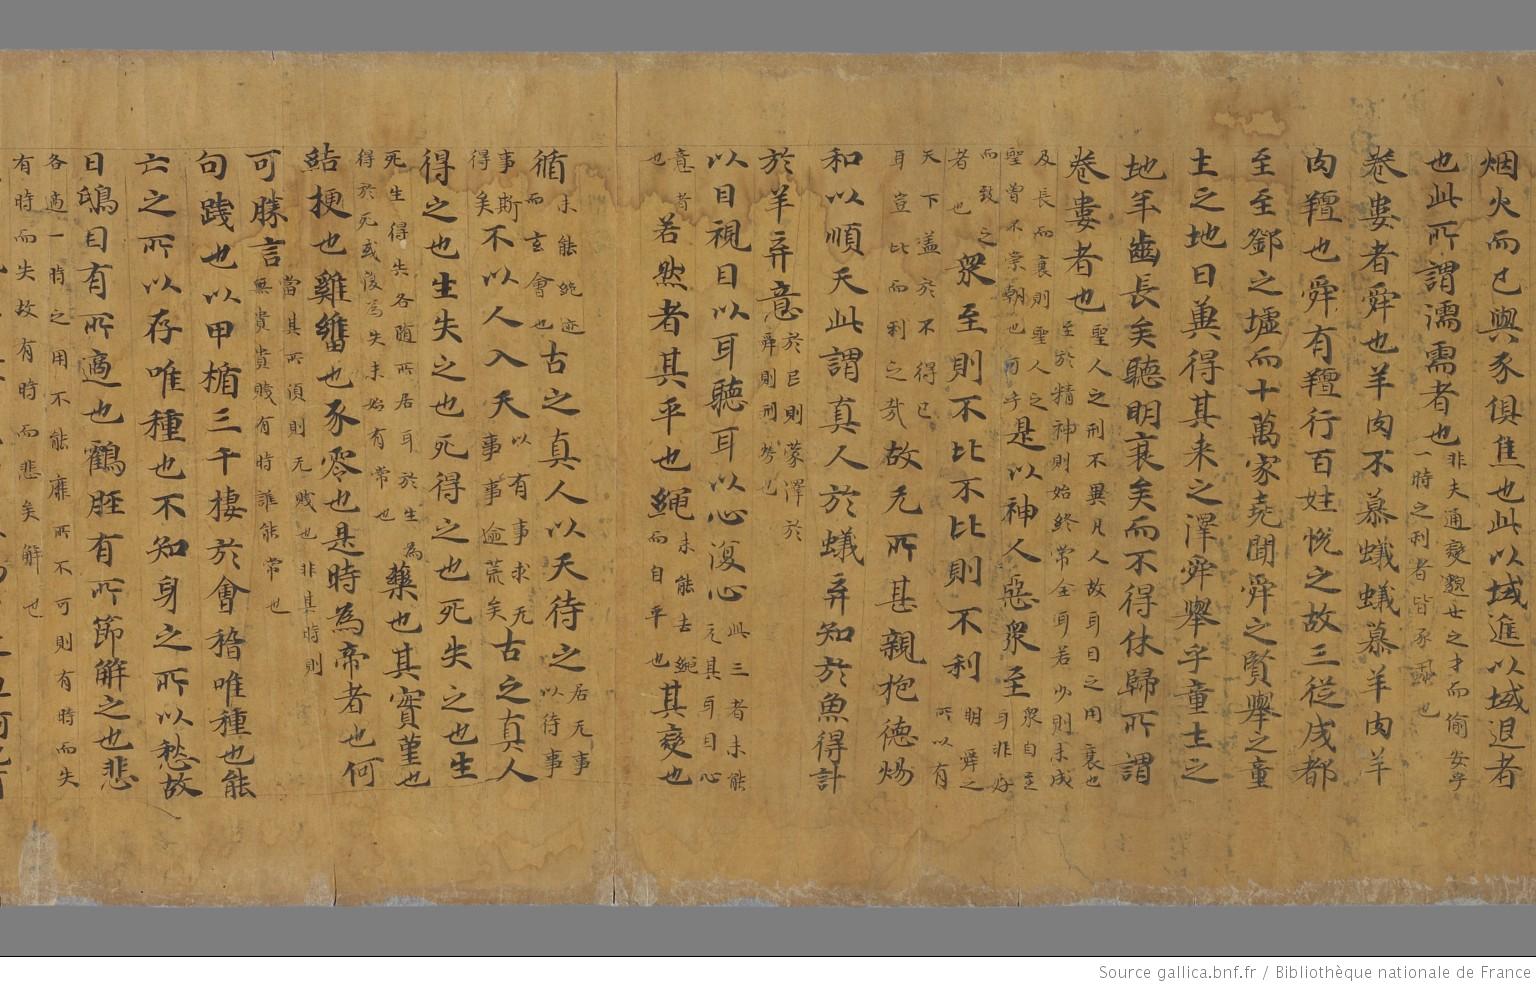 烟火而已與豕俱焦也此以域進以域退者
也此所謂濡需者也非夫通變邈世之才而偷安乎
一時之利者皆豕蝨也
卷婁者舜也羊肉不慕蟻蟻慕羊肉羊
肉羶也舜有羶行百姓悅之故三徙成都
至至鄧之墟而十萬家堯聞舜之賢舉之童
土之地曰冀得其来之澤舜舉乎童土之
地年齒長矣聽明衰矣而不得休歸所謂
卷婁者也聖人之形不異凡人故耳目之用衰也
至於精神則始終常全耳若少則未成
及長而衰則聖人之
聖曾不崇朝也可乎是以神人惡衆至衆自至
耳非好
而致之衆至則不比不比則不利明舜之
者也所以有
天下蓋於不得已
耳豈比而利之哉故无所甚親抱德煬
和以順天此謂真人於蟻弃知於魚得計
於羊弃意於民則蒙澤於
舜則形勞也
以目視目以耳聽耳以心復心此三者未能
无其耳目心
意者
也若然者其平也繩未能去繩
而自平也其變也
循未能絶迹
而玄會也古之真人以天待之居无事
以待事
事斯
得矣不以人入天以有事求无
事事逾荒矣古之真人
得之也生失之也死得之也死失之也生
死生得失各随所居耳於生為
得於死或復為失未始有常也藥也其實堇也
䂒梗也雞癕也豕零也是時為帝者也何
可勝言當其所須則无賎也非其時則
無貴貴賎有時誰能常也
句踐也以甲楯三千棲於會稽唯種也能
亡之所以存唯種也不知身之所以愁故
曰鴟目有所適也鶴脛有所節解之也悲
各適一時之用不能靡所不可則有時而失
有時而失故有時而悲矣解也